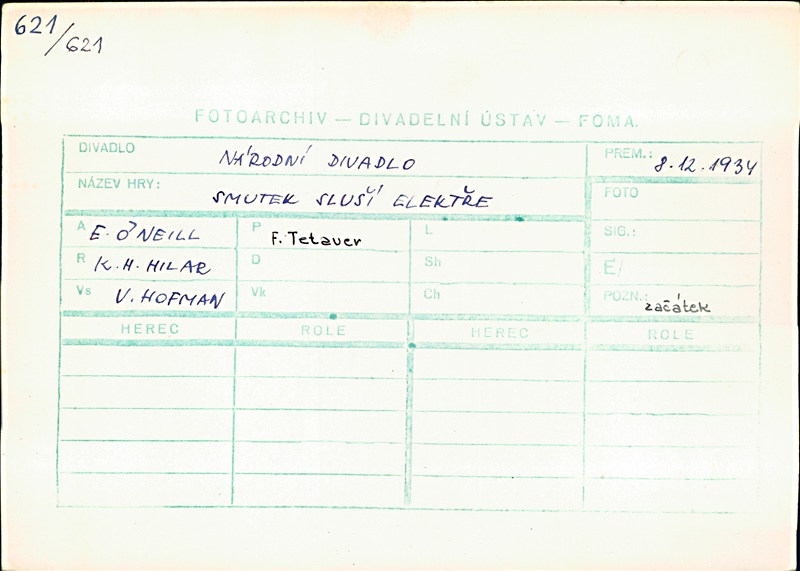 621/621
FOTOARCHIV — DIVADELNÍ ÚSTAV — FOMA.
DIVADLO NÁRODNÍ DIVADLO PREM.: 8.12.1934
NÁZEV HRY: SMUTEK SLUŠÍ ELEKTŘE FOTO
A E. O'NEILL P F. Tetauer L SIG.:
R K.H. HILAR D Sh E/
Vs V. HOFMAN Vk Ch POZN.: začátek
HEREC ROLE HEREC ROLE